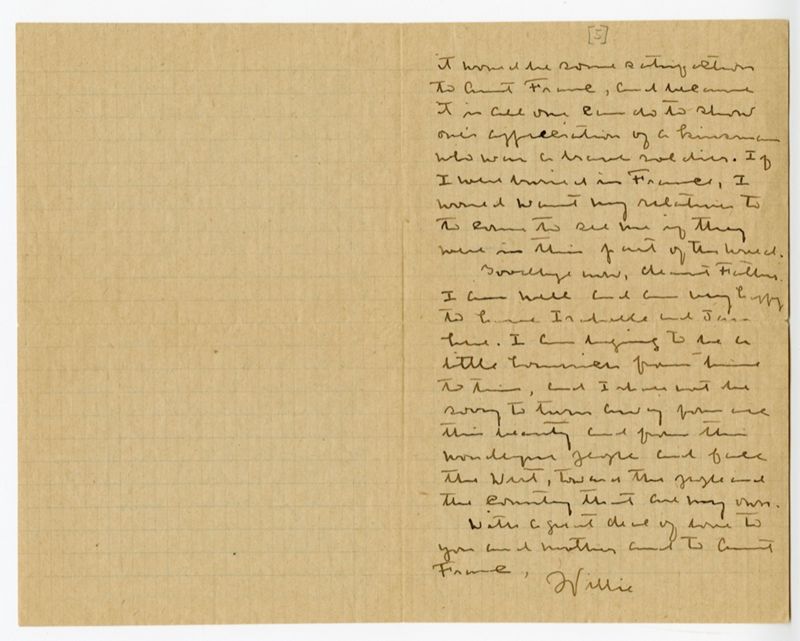 [5]
it would be some satisfaction
to Aunt Franc, and because
it is all one can do to show
one's appreciation of a kinsman
who was a brave soldier. If
I were buried in France, I
would want my relatives to
to come to see me if they
were in this part of the world.
Goodbye now, dearest Father.
I am well and am very happy
to have Isabelle and Jan
here. I am beginning to be a
little homesick from time
to time, and I shall not be
sorry to turn away from all
this beauty and from this
wonderful people and face
the West, toward the people and
the country that are my own.
With a great deal of love to
you and mother and to Aunt
Franc,
Willie